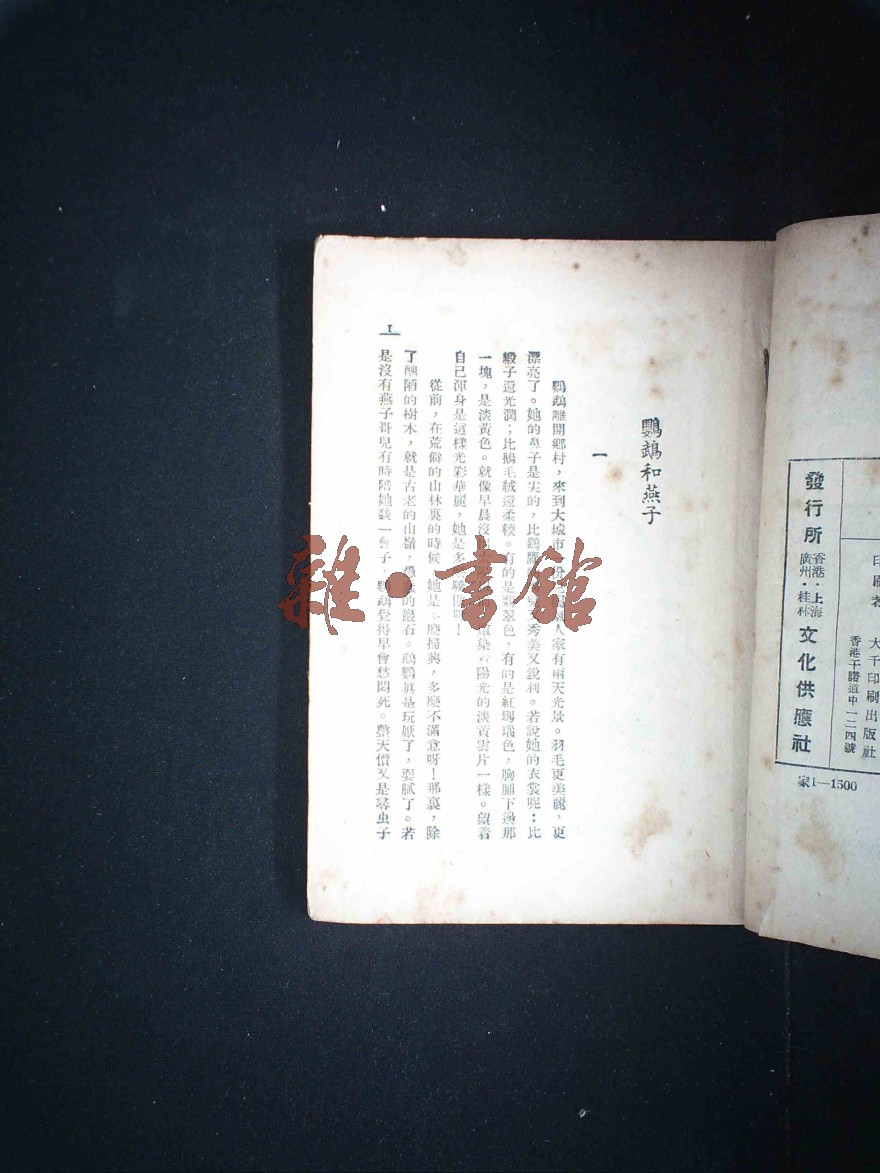 發行所 香港·上海 廣州·桂林 文化供應社
大千印刷出版社
香港干諾道中一二四號
家1—1500
鸚鵡和燕子
一
鸚鵡離開鄉村，來到大城市 人家有兩天光景。羽毛更美麗，更
漂亮了。她的鼻子是尖的，比 秀美又銳利。若說她的衣裳呢：比
緞子還光潤；比鵝毛絨還柔輭。有的是翡翠色，有的是紅瑪瑙色，胸脯下邊那
一塊，是淡黃色。就像早晨沒 染着陽光的淡黃雲片一樣。望着
自己渾身是這樣光彩華麗，她是多 ！
從前，在荒僻的山林裏的時候，她是多麼掃興，多麼不滿意呀！那裏，除
了醜陋的樹木，就是古老的山嶺， 的巖石。鸚鵡眞是玩厭了，耍膩了。若
是沒有燕子哥兒有時陪她談一會子，鸚鵡覺得早會愁悶死。整天價又是尋虫子
1
雜·書館